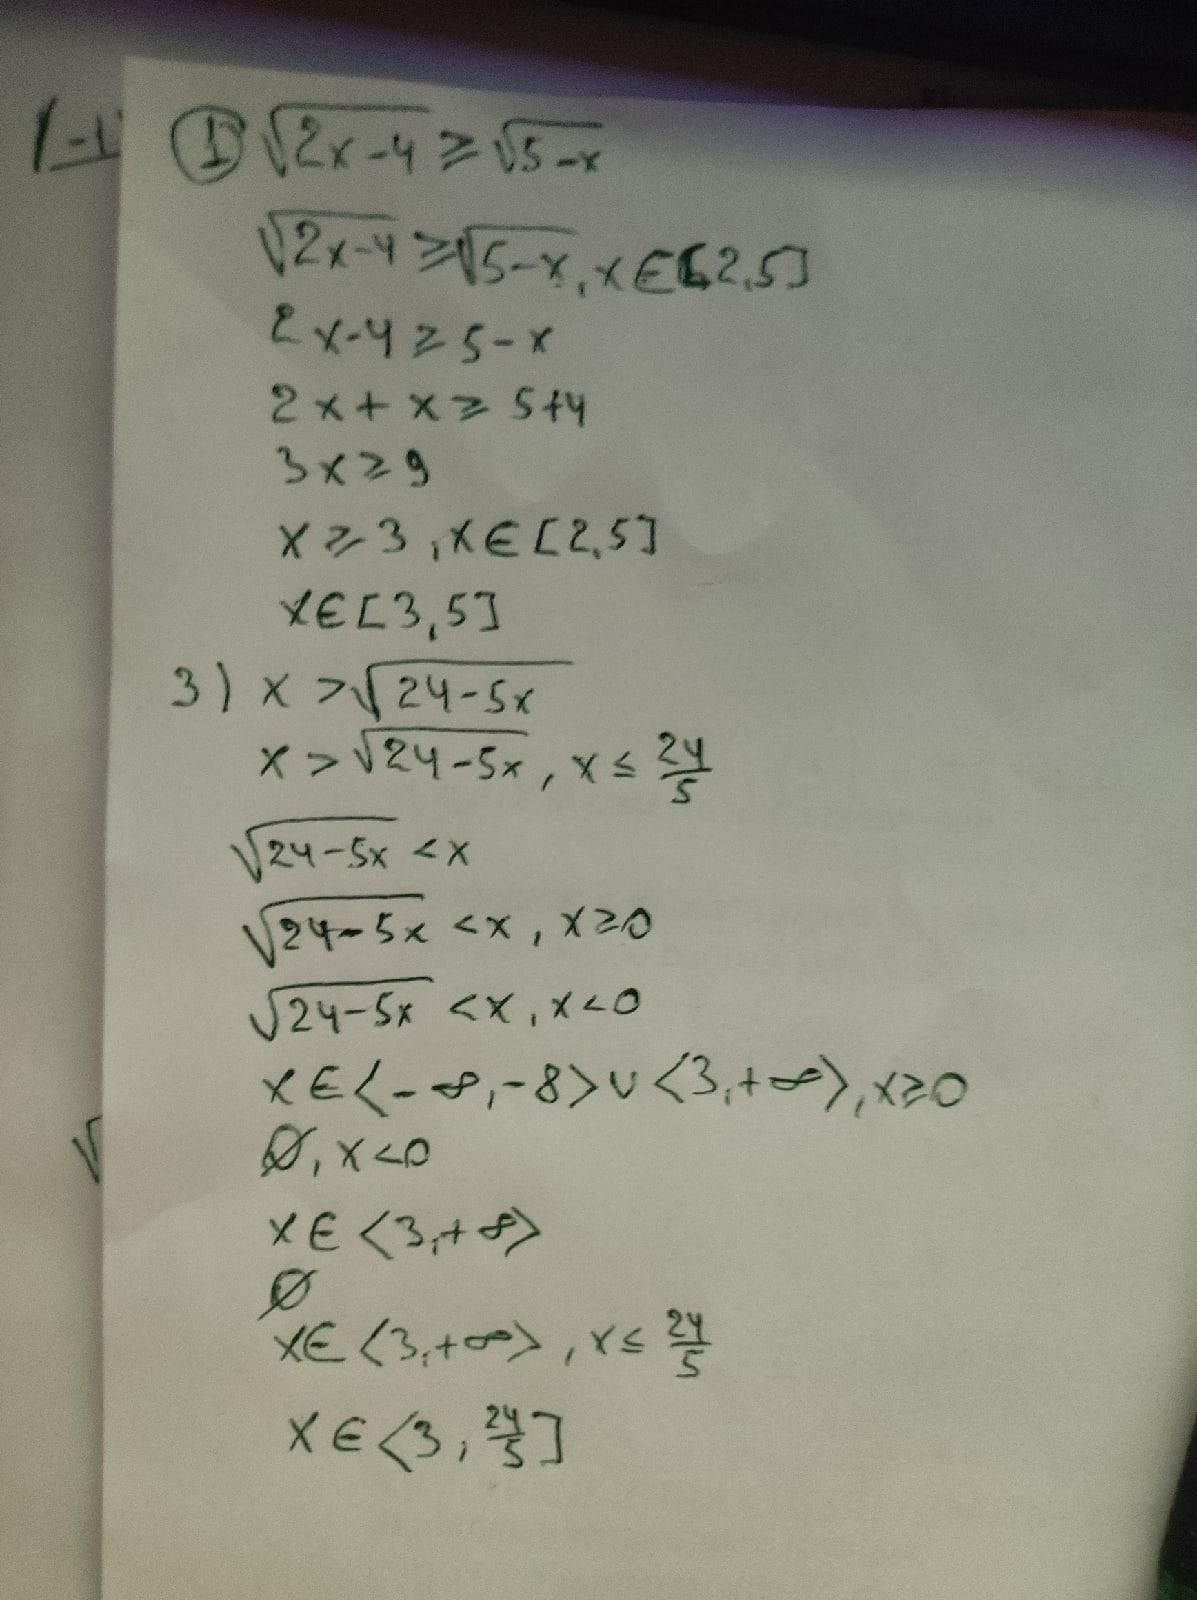 1-1
① √2x-4 ≥ √5-x
√2x-4 ≥ √5-x, x ∈ [2,5]
2x-4 ≥ 5-x
2x + x ≥ 5+4
3x ≥ 9
x ≥ 3, x ∈ [2,5]
x ∈ [3,5]
3) x > √24-5x
x > √24-5x, x ≤ 24/5
√24-5x < x
√24-5x < x, x ≥ 0
√24-5x < x, x < 0
x ∈ ⟨-∞,-8⟩ ∪ ⟨3,+∞⟩, x ≥ 0
∅, x < 0
√
x ∈ ⟨3,+∞⟩
∅
x ∈ ⟨3,+∞⟩, x ≤ 24/5
x ∈ ⟨3, 24/5]